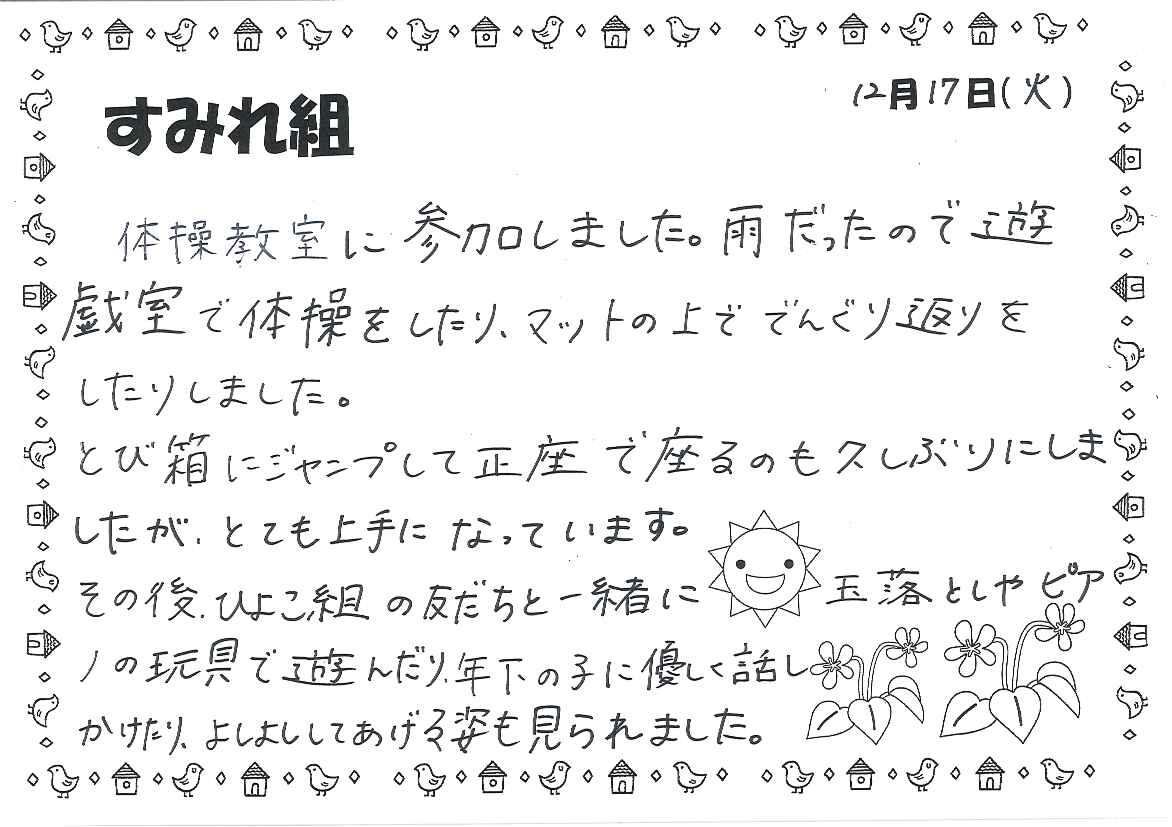 12月17日(火)
すみれ組
体操教室に参加しました。雨だったので遊
戯室で体操をしたり、マットの上ででんぐり返りを
したりしました。
とび箱にジャンプして正座で座るのも久しぶりにしま
したが、とても上手になっています。
その後、ひよこ組の友だちと一緒に玉落としやピア
ノの玩具で遊んだり、年下の子に優しく話し
かけたり、よしよししてあげる姿も見られました。